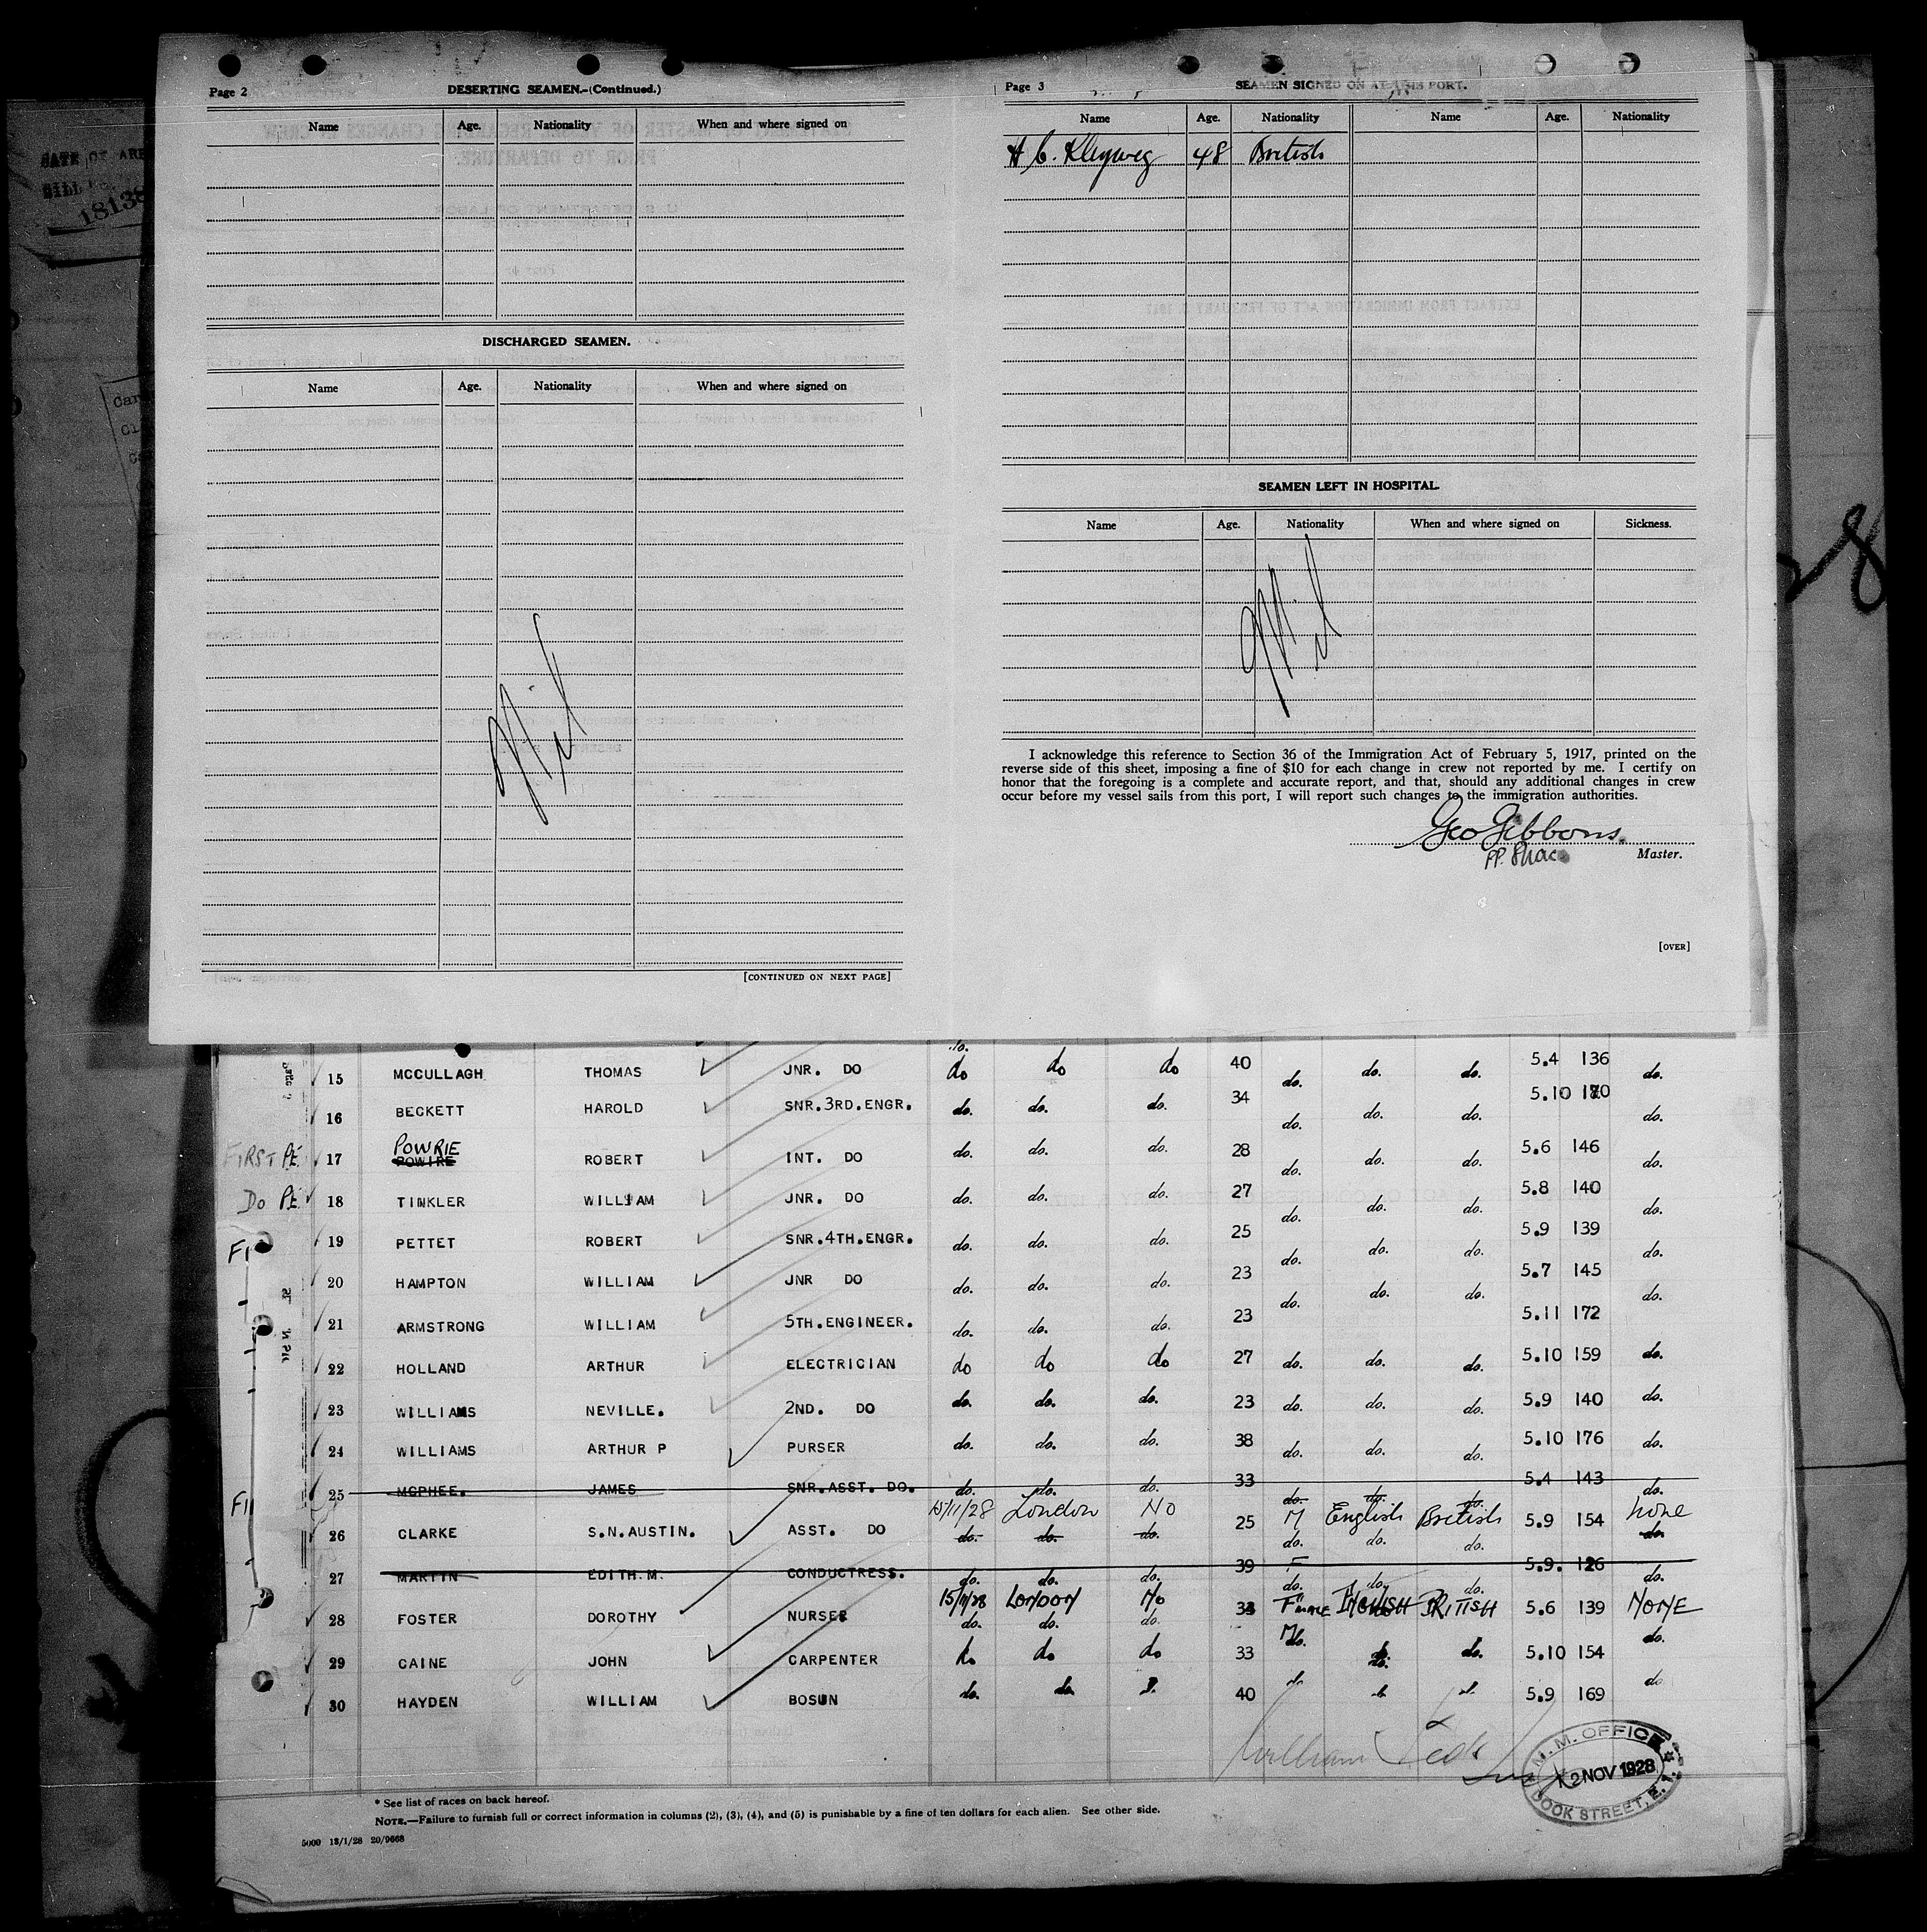 Page 2
DESERTING SEAMEN.-(Continued.)
Name Age. Nationality When and where signed on
DISCHARGED SEAMEN.
Name Age. Nationality When and where signed on
Nil
[CONTINUED ON NEXT PAGE]
Page 3
SEAMEN SIGNED ON AT THIS PORT.
Name Age. Nationality Name Age. Nationality
H C. Kleyweg 48 British
SEAMEN LEFT IN HOSPITAL.
Name Age. Nationality When and where signed on Sickness.
Nil
I acknowledge this reference to Section 36 of the Immigration Act of February 5, 1917, printed on the
reverse side of this sheet, imposing a fine of $10 for each change in crew not reported by me. I certify on
honor that the foregoing is a complete and accurate report, and that, should any additional changes in crew
occur before my vessel sails from this port, I will report such changes to the immigration authorities.
Geo Gibbons.
Master.
[OVER]
18138
28
do.
15 MCCULLAGH THOMAS JNR. DO do do do 40 do. do. do. 5.4 136 do.
16 BECKETT HAROLD SNR.3RD.ENGR. do. do. do. 34 do. do. do. 5.10 180 do.
FIRST PE 17 POWRIE
POWIRE ROBERT INT. DO do. do. do. 28 do. do. do. 5.6 146 do.
DO PE 18 TINKLER WILLIAM JNR. DO do. do. 27 do. do. do. 5.8 140 do.
19 PETTET ROBERT SNR.4TH.ENGR. do. do. do. 25 do. do. do. 5.9 139 do.
20 HAMPTON WILLIAM JNR DO do. do. do. 23 do. do. do. 5.7 145 do.
21 ARMSTRONG WILLIAM 5TH.ENGINEER. do. do. do. 23 5.11 172
22 HOLLAND ARTHUR ELECTRICIAN do do do 27 do. do. do. 5.10 159 do.
23 WILLIAMS NEVILLE. 2ND. DO do. do. do. 23 do. do. do. 5.9 140 do.
24 WILLIAMS ARTHUR P PURSER do. do. do. 38 do. do. do. 5.10 176 do.
25 MCPHEE. JAMES SNR.ASST. DO. do. do. do. 33 do. do. do. 5.4 143 do.
15/11/28 London No M English British none
26 CLARKE S.N.AUSTIN. ASST. DO do. do. do. 25 do. do. do. 5.9 154 do.
27 MARTIN EDITH.M. CONDUCTRESS. do. do. do. 39 F do. do. do. 5.9. 126 do.
15/11/28 LONDON No FEMALE ENGLISH BRITISH NONE
28 FOSTER DOROTHY NURSES do. do. do. 33 5.6 139 do.
29 CAINE JOHN CARPENTER do do do 33 M do. do. do. 5.10 154
30 HAYDEN WILLIAM BOSUN do. do. do. 40 do. do. do. 5.9 169 do
M.M. OFFICE
12 NOV 1928
DOCK STREET, E.1.
* See list of races on back hereof.
NOTE.—Failure to furnish full or correct information in columns (2), (3), (4), and (5) is punishable by a fine of ten dollars for each alien. See other side.
5000 13/1/28 20/9668